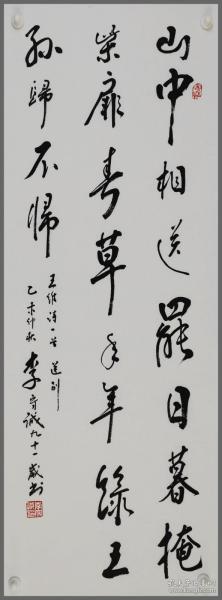 山中相送罷日暮掩
柴扉春草年年綠王
孫歸不歸
王維詩一首送別
乙未仲秋李守誠九十一歲書